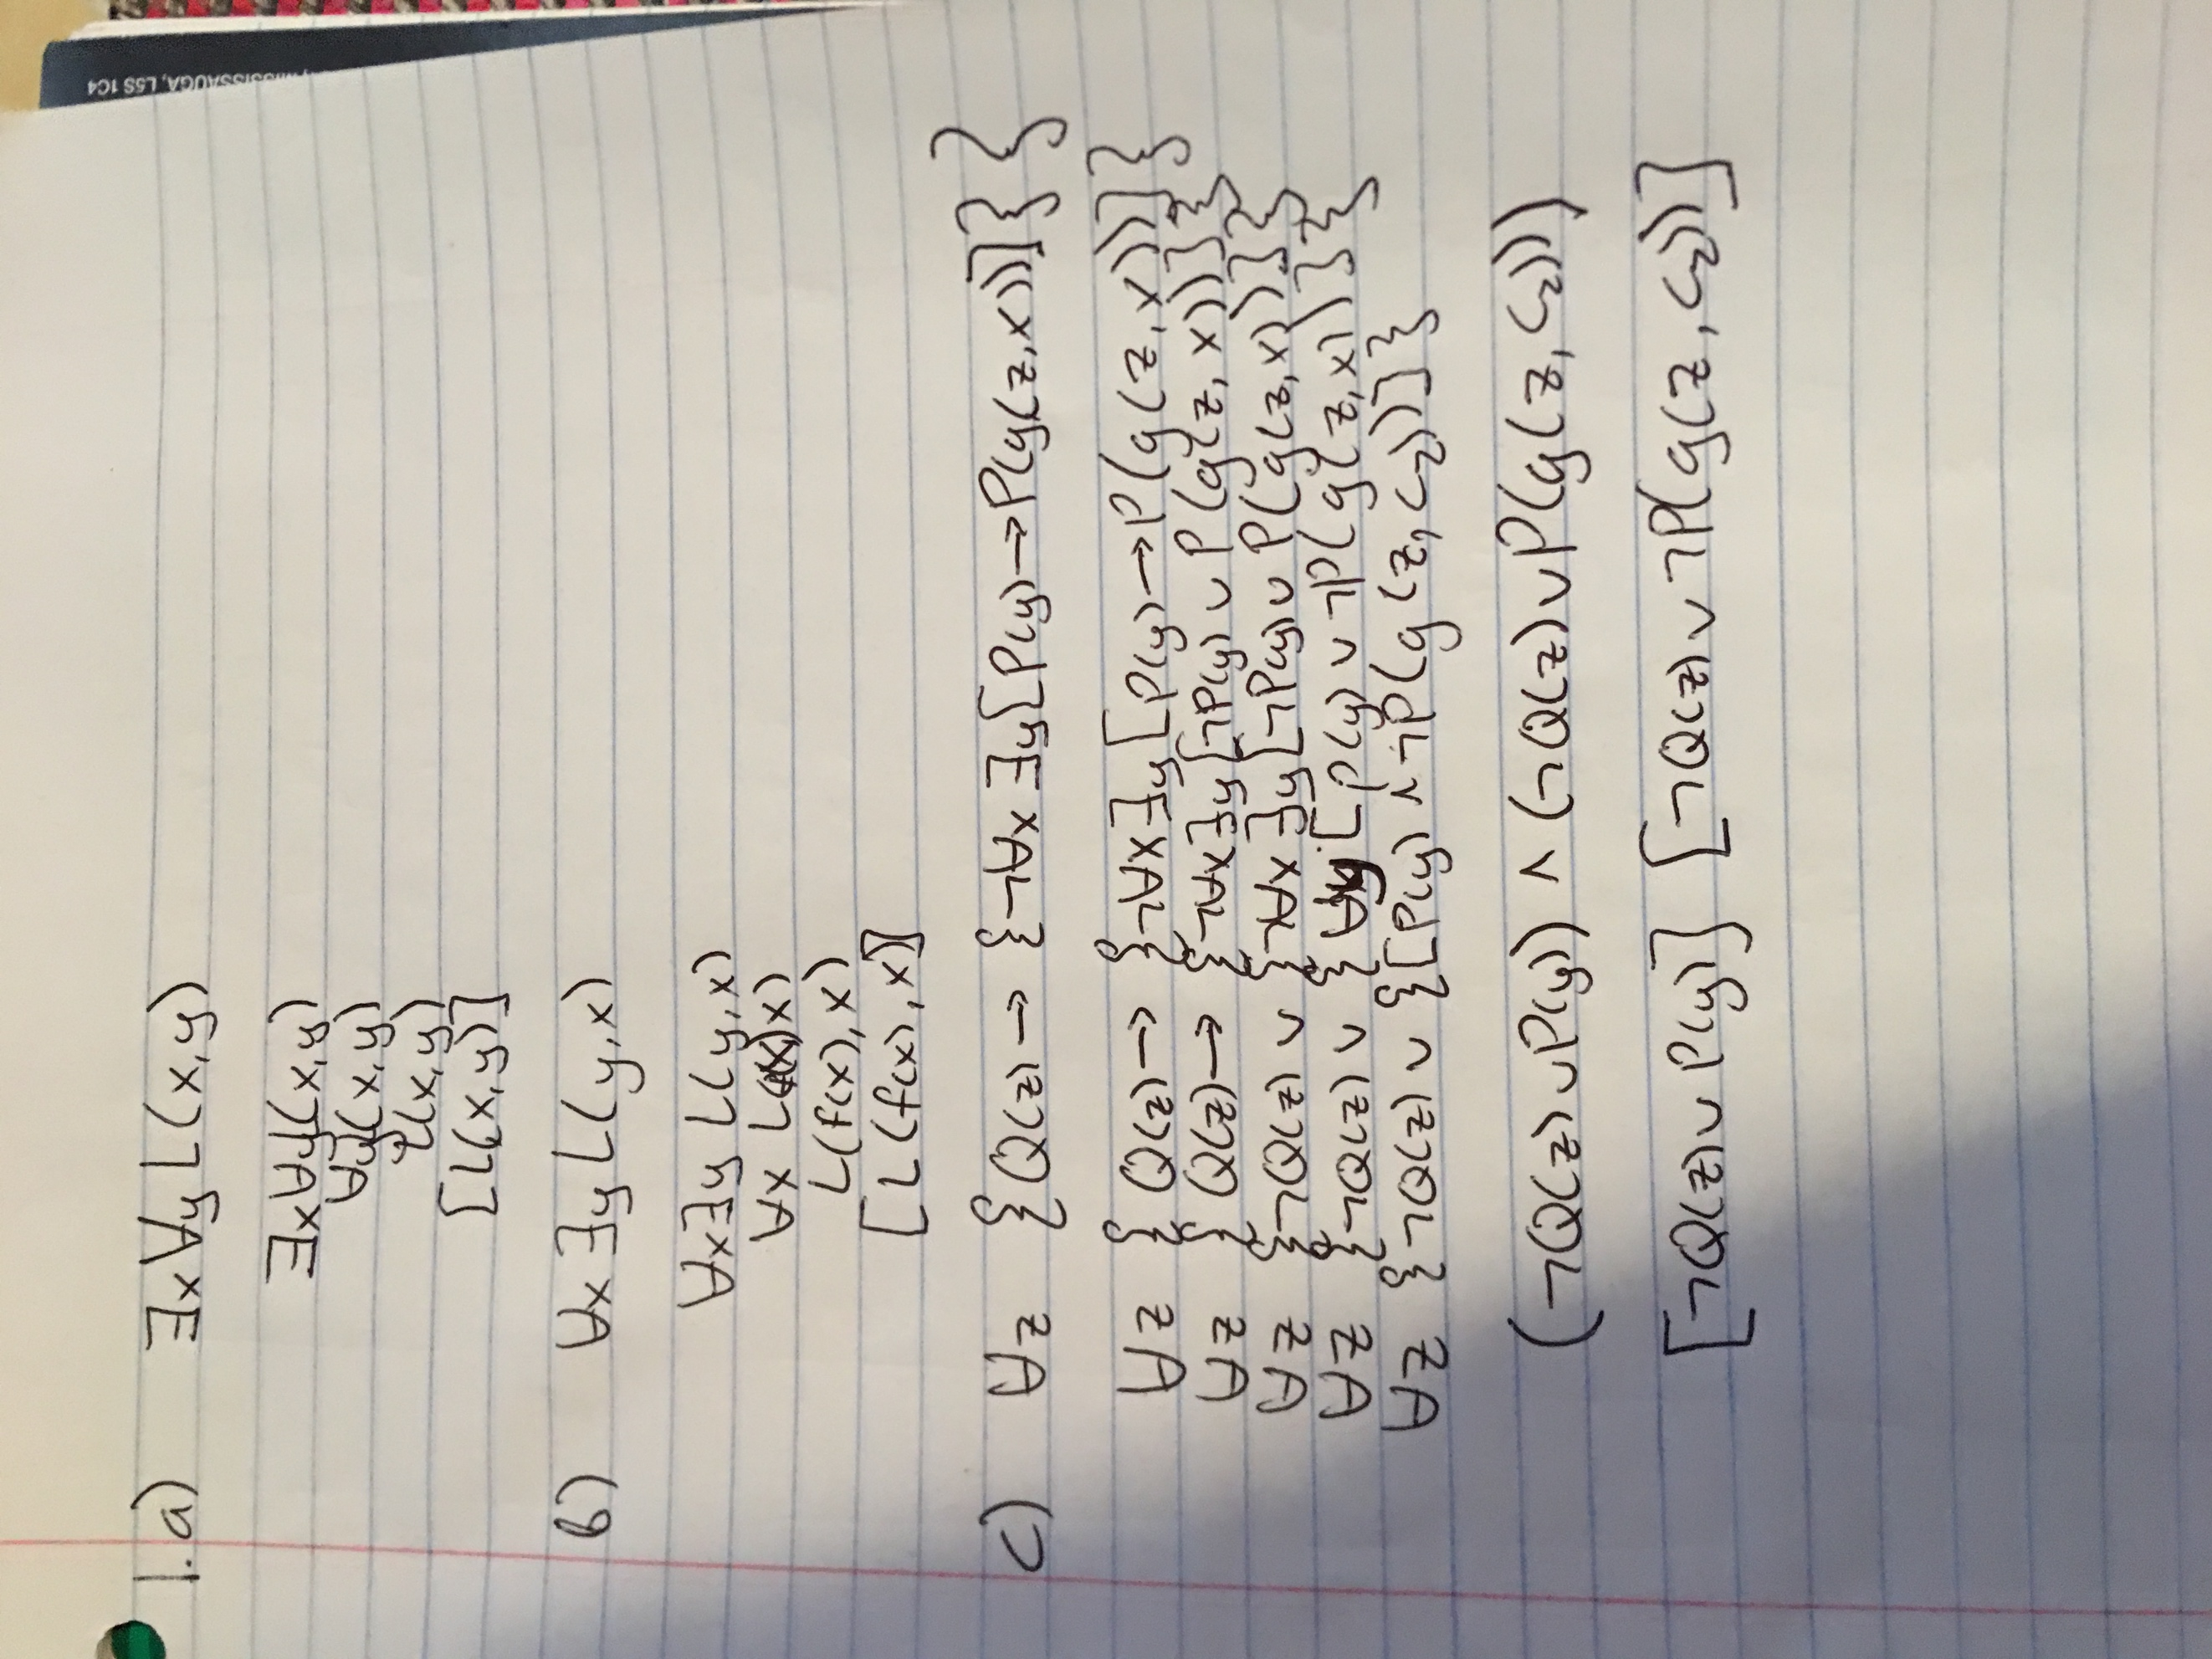 MISSISSAUGA, L5S 1C4
1.a) ∃x∀y L(x,y)
∃x∀y L(x,y)
∀y L(x,y)
L(x,y)
[L(x,y)]
b) ∀x ∃y L(y,x)
∀x∃y L(y,x)
∀x L(f(x),x)
L(f(x),x)
[L(f(x),x)]
c) ∀z {Q(z) → {¬∀x ∃y[P(y)→P(g(z,x))]}}
∀z {Q(z) → {¬∀x∃y[P(y)→P(g(z,x))]}}
∀z {Q(z) → {¬∀x∃y[¬P(y) ∨ P(g(z,x))]}}
∀z {¬Q(z) ∨ {¬∀x∃y[¬P(y) ∨ P(g(z,x))]}}
∀z {¬Q(z) ∨ {∀y[P(y) ∨ ¬P(g(z,x))]}}
∀z {¬Q(z) ∨ {[P(y) ∧ ¬P(g(z,c2))]}}
(¬Q(z) ∨ P(y)) ∧ (¬Q(z) ∨ P(g(z,c2)))
[¬Q(z) ∨ P(y)] [¬Q(z) ∨ ¬P(g(z,c2))]